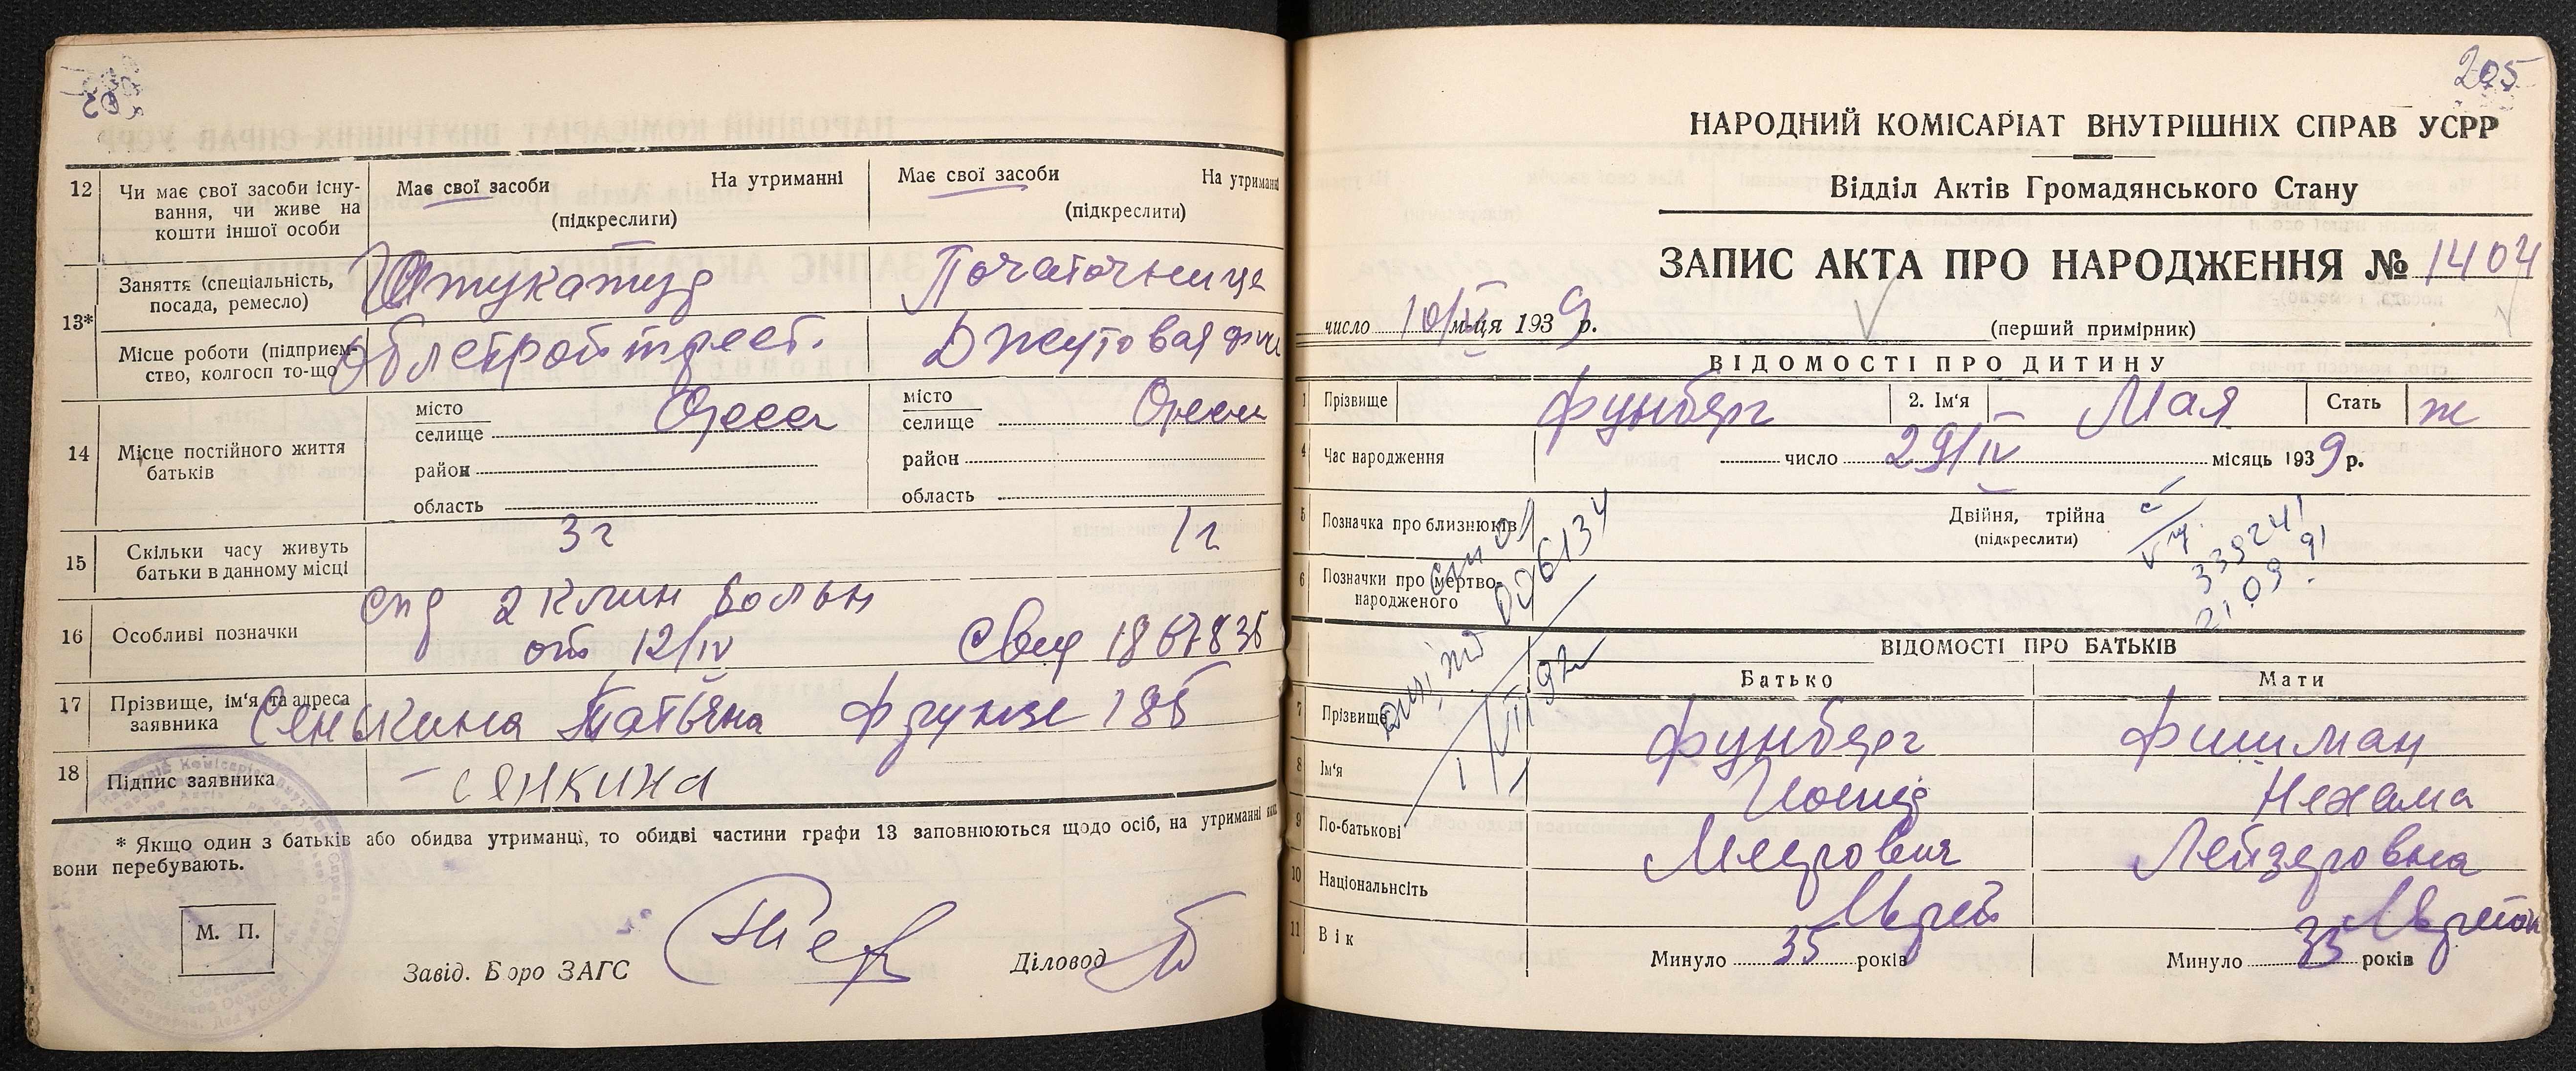 12
Чи має свої засоби існу-
вання, чи живе на
кошти іншої особи
Має свої засоби
На утриманні
(підкреслити)
Має свої засоби
На утриманні
(підкреслити)
13*
Заняття (спеціальність,
посада, ремесло)
Штукатур
Початочнице
Місце роботи (підприєм-
ство, колгосп то-що)
Облстройтрест.
Джутовая
14
Місце постійного життя
батьків
місто
селище
Одесса
район
область
місто
селище
Одесса
район
область
15
Скільки часу живуть
батьки в данному місці
3 г
1 г
16
Особливі позначки
спр 2 Клин Больн
от 12/IV
Свид 1867835
17
Прізвище, ім'я та адреса
заявника
Сенькина Татьяна Фрунзе 185
18
Підпис заявника
Сянкина
* Якщо один з батьків або обидва утриманці, то обидві частини графи 13 заповнюються щодо осіб, на утриманні яких
вони перебувають.
М. П.
Завід. Бюро ЗАГС
Діловод
205
НАРОДНИЙ КОМІСАРІАТ ВНУТРІШНІХ СПРАВ УСРР
Відділ Актів Громадянського Стану
ЗАПИС АКТА ПРО НАРОДЖЕННЯ № 1404
число 10/V м-ця 1939 р.
(перший примірник)
ВІДОМОСТІ ПРО ДИТИНУ
1
Прізвище
Фунберг
2. Ім'я
Мая
Стать
ж
4
Час народження
число 29/IV місяць 1939 р.
5
Позначка про близнюків
Двійня, трійна
(підкреслити)
339241
21.09.91
6
Позначки про мертво-
народженого
006134
1/VII 92
ВІДОМОСТІ ПРО БАТЬКІВ
Батько
Мати
7
Прізвище
Фунберг
Фишман
8
Ім'я
Иосиф
Нехама
9
По-батькові
Меерович
Лейзеровна
10
Національнсість
Еврей
Еврейка
11
Вік
Минуло 35 років
Минуло 33 років